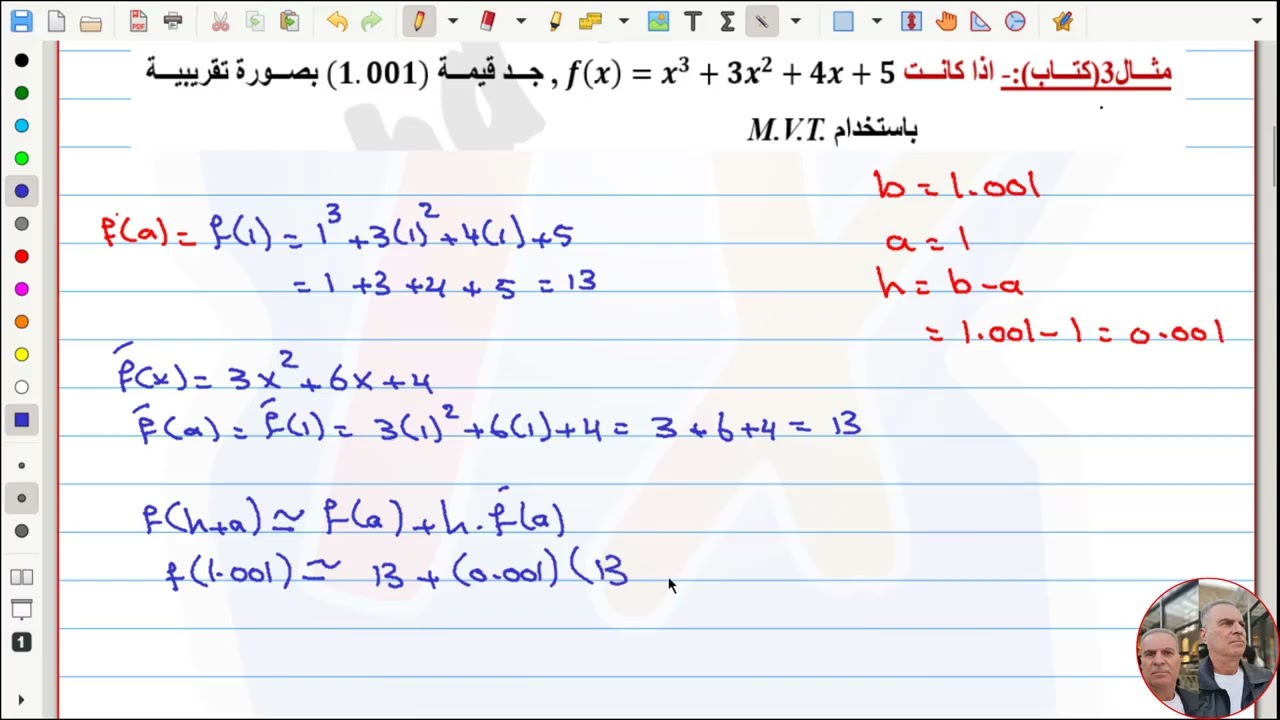 مثـال3(كتـاب):- اذا كانـت f(x) = x³ + 3x² + 4x + 5 , جـد قيمـة (1.001) بصـورة تقريبيـة
باستخدام M.V.T.
b = 1.001
a = 1
h = b - a
= 1.001 - 1 = 0.001
f(a) = f(1) = 1³ + 3(1)² + 4(1) + 5
= 1 + 3 + 4 + 5 = 13
f̄(x) = 3x² + 6x + 4
f̄(a) = f̄(1) = 3(1)² + 6(1) + 4 = 3 + 6 + 4 = 13
f(h+a) ≃ f(a) + h . f̄(a)
f(1.001) ≃ 13 + (0.001) (13
PDF
1